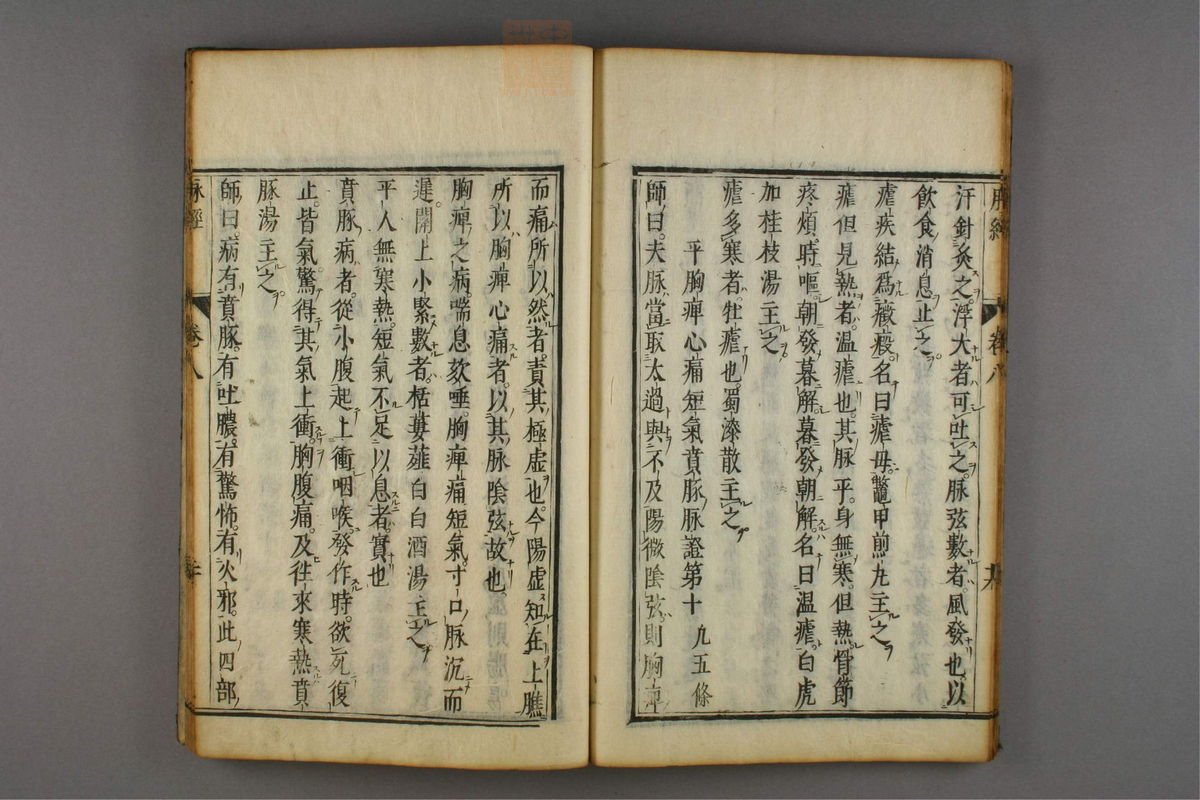 汗針灸之浮大者可吐之脉弦數者風發也以
飲食消息止之
瘧疾結爲癥瘕名曰瘧母鼈甲煎丸主之
瘧但見熱者温瘧也其脉平身無寒但熱骨節
疼煩時嘔朝發暮解暮發朝解名曰温瘧白虎
加桂枝湯主之
瘧多寒者牡瘧也蜀漆散主之
平胸痺心痛短氣賁豚脉證第十 凡五條
師曰夫脉當取太過與不及陽微陰弦則胸痺
而痛所以然者責其極虚也今陽虚知在上膲
所以胸痺心痛者以其脉陰弦故也
胸痺之病喘息欬唾胸痺痛短氣寸口脉沉而
遲關上小緊數者栝蔞薤白白酒湯主之
平人無寒熱短氣不足以息者實也
賁豚病者從小腹起上衝咽喉發作時欲死復
止皆氣驚得其氣上衝胸腹痛及徃來寒熱賁
豚湯主之
師曰病有賁豚有吐膿有驚怖有火邪此四部
脉經 卷八